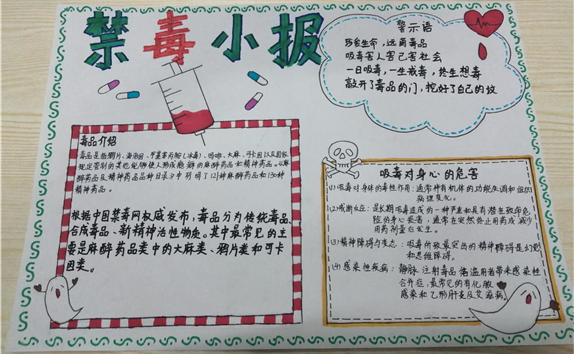 禁毒小报
警示语
珍爱生命，远离毒品
吸毒害人害己害社会
一日吸毒，一生戒毒，终生想毒
敲开了毒品的门，挖好了自己的坟
毒品介绍
毒品是指鸦片、海洛因、甲基苯丙胺(冰毒)、吗啡、大麻、可卡因以及国家
规定管制的其它能够使人形成瘾癖的麻醉药品和精神药品。《麻
醉药品及精神药品品种目录》中列明了121种麻醉药品和130种
精神药品。
根据中国禁毒网权威发布，毒品分为传统毒品、
合成毒品、新精神活性物质。其中最常见的主
要是麻醉药品类中的大麻类、鸦片类和可卡
因类。
吸毒对身心的危害
(1)吸毒对身体的毒性作用：通常伴有机体的功能失调和组织
病理变化。
(2)戒断反应：是长期吸毒造成的一种严重和具有潜在致命危
险的身心损害，通常在突然终止用药或减少
用药剂量后发生。
(3)精神障碍与变态：吸毒所致最突出的精神障碍是幻觉
和思维障碍。
(4)感染性疾病：静脉注射毒品滥用者带来感染性
合并症，最常见的有化脓
感染和乙形肝炎及艾滋病。